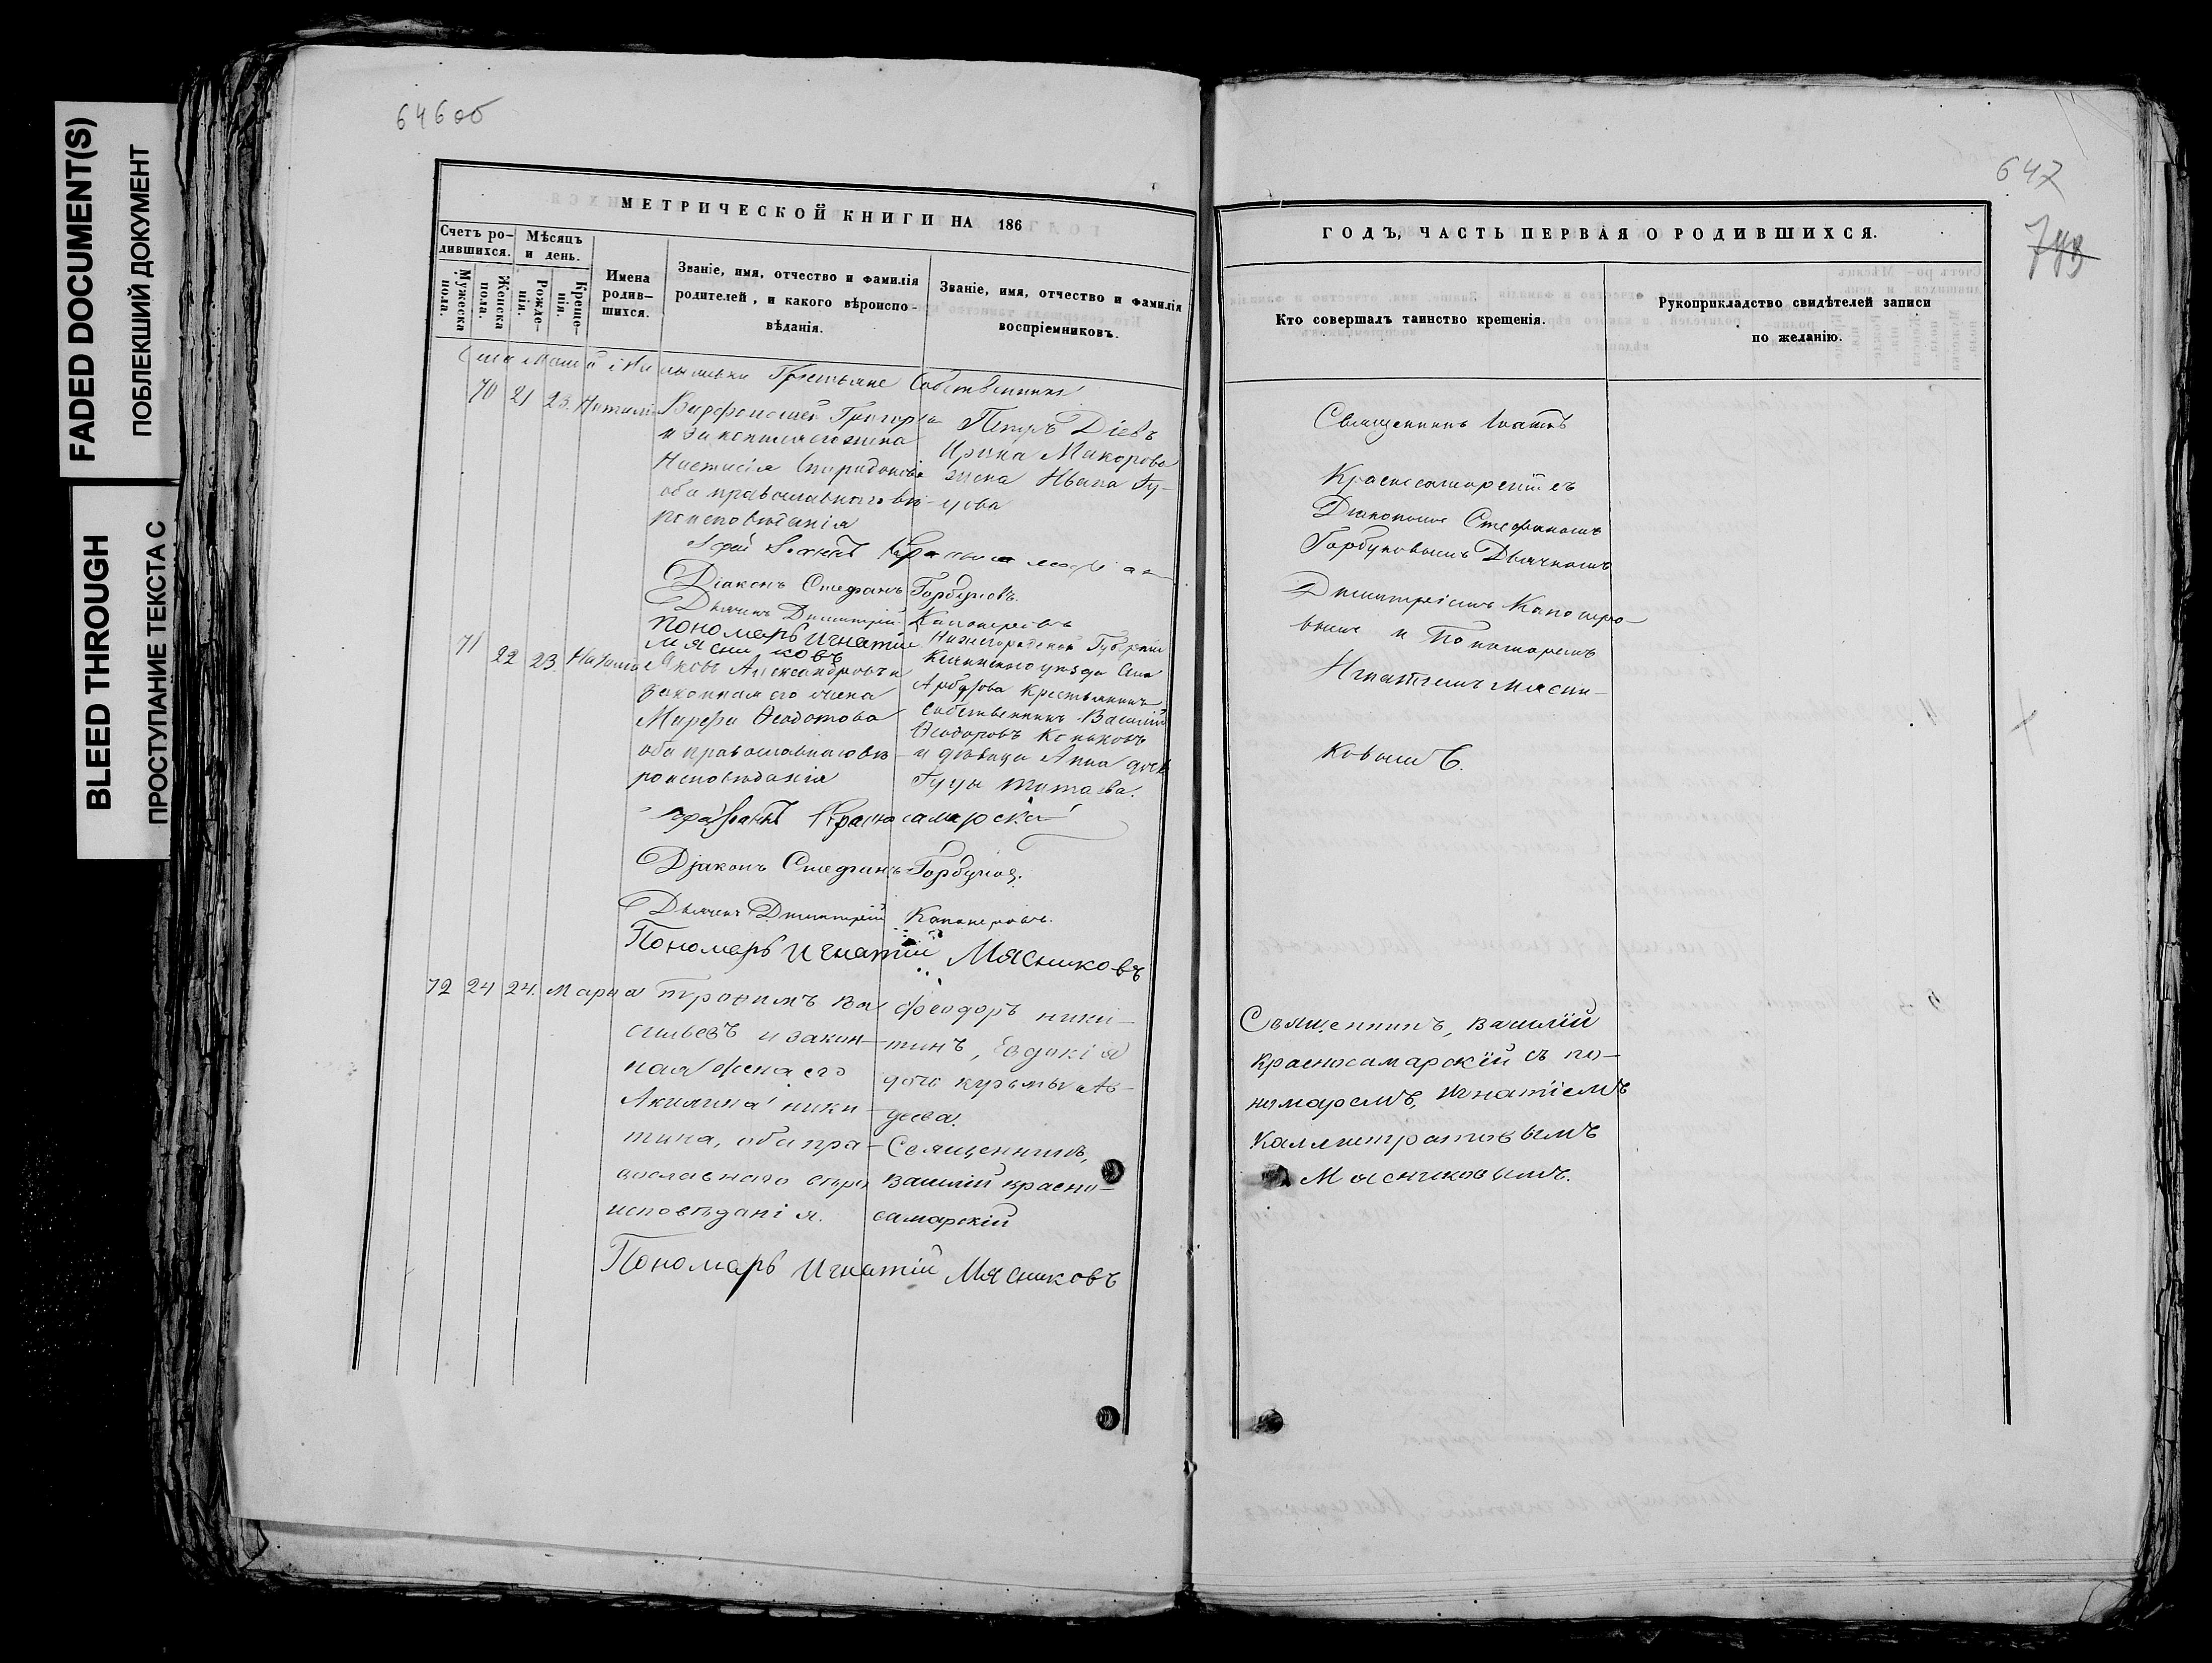 FADED DOCUMENT(S)
ПОБЛЕКШИЙ ДОКУМЕНТ
BLEED THROUGH
ПРОСТУПАНИЕ ТЕКСТА С
646об
МЕТРИЧЕСКОЙ КНИГИ НА 186
Счетъ ро-
дившихся.
Мужеска
пола.
Женска
пола.
Мѣсяцъ
и день.
Рожде-
нія.
Креще-
нія.
Имена
родив-
шихся.
Званіе, имя, отчество и фамилія
родителей, и какого вѣроиспо-
вѣданія.
Званіе, имя, отчество и фамилія
воспріемниковъ.
Крестьяне Собственники
70 21 23. Наталія
Григорьевъ
и законная его жена
Настасія Спиридонова
оба православнаго вѣ-
роисповѣданія
Петръ Діевъ
Ирина Макорова
жена Ивана Гу-
цова
Іерей Іоаннъ Красносамарскій
Діаконъ Стефанъ Горбуновъ.
Дьячекъ Димитрій Канонеровъ
Пономарь Игнатій
Мясниковъ
71 22 23. Наталія
Яковъ Александровъ и
законная его жена
Марфа Ѳеодотова
оба православнаго вѣ-
роисповѣданія
Нижегородской Губерніи
Княгин­скаго уѣзда Села
Арбузова Крестьянинъ
Собственникъ Василій
Ѳеодоровъ Коньковъ
и дѣвица Анна дочь
Гуцы Титаева.
Іерей Іоаннъ Красносамарскій
Діаконъ Стефанъ Горбуновъ.
Дьячекъ Димитрій Канонеровъ.
Пономарь Игнатій Мясниковъ
72 24 24. Мариа
Трофимъ Ва
сильевъ и закон-
ная жена его
Акилина ники-
тина, оба пра-
вославнаго вѣро
исповѣданія.
Феодоръ ники-
тинъ, Евдокія
дочь кузьмы Ав-
деева.
Священникъ,
Василій красно-
самарскій
Пономарь Игнатій Мясниковъ
647
793
ГОДЪ, ЧАСТЬ ПЕРВАЯ О РОДИВШИХСЯ.
Кто совершалъ таинство крещенія.
Рукоприкладство свидѣтелей записи
по желанію.
Священникъ Іоаннъ
Красносамарскій съ
Діакономъ Стефаномъ
Горбуновымъ Дьячкомъ
Димитріемъ Каноне­ро-
вымъ и Пономаремъ
Игнатіемъ Мясни-
ковымъ.
Священникъ, василій
красносамарскій съ по-
номаремъ, Игнатіемъ
Каллистратовымъ
Мясниковымъ.